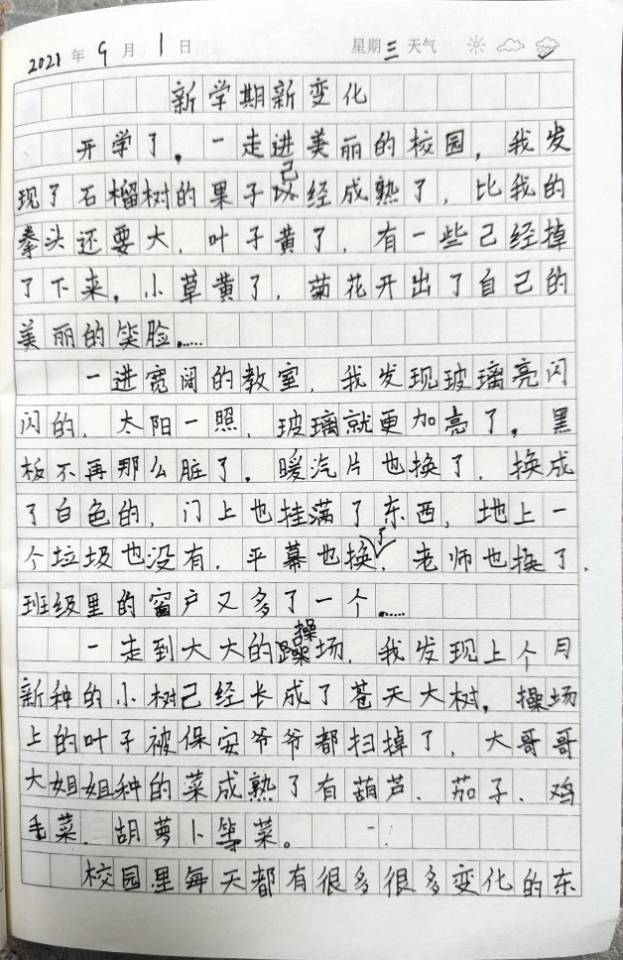 2021年9月1日 星期三 天气
新学期新变化
开学了，一走进美丽的校园，我发
现了石榴树的果子已经成熟了，比我的
拳头还要大，叶子黄了，有一些己经掉
了下来，小草黄了，菊花开出了自己的
美丽的笑脸……
一进宽阔的教室，我发现玻璃亮闪
闪的，太阳一照，玻璃就更加亮了，黑
板不再那么脏了，暖汽片也换了，换成
了白色的，门上也挂满了东西，地上一
个垃圾也没有，平幕也换了，老师也换了，
班级里的窗户又多了一个……
一走到大大的操场，我发现上个月
新种的小树己经长成了苍天大树，操场
上的叶子被保安爷爷都扫掉了，大哥哥
大姐姐种的菜成熟了有葫芦、茄子、鸡
毛菜、胡萝卜等菜。
校园里每天都有很多很多变化的东